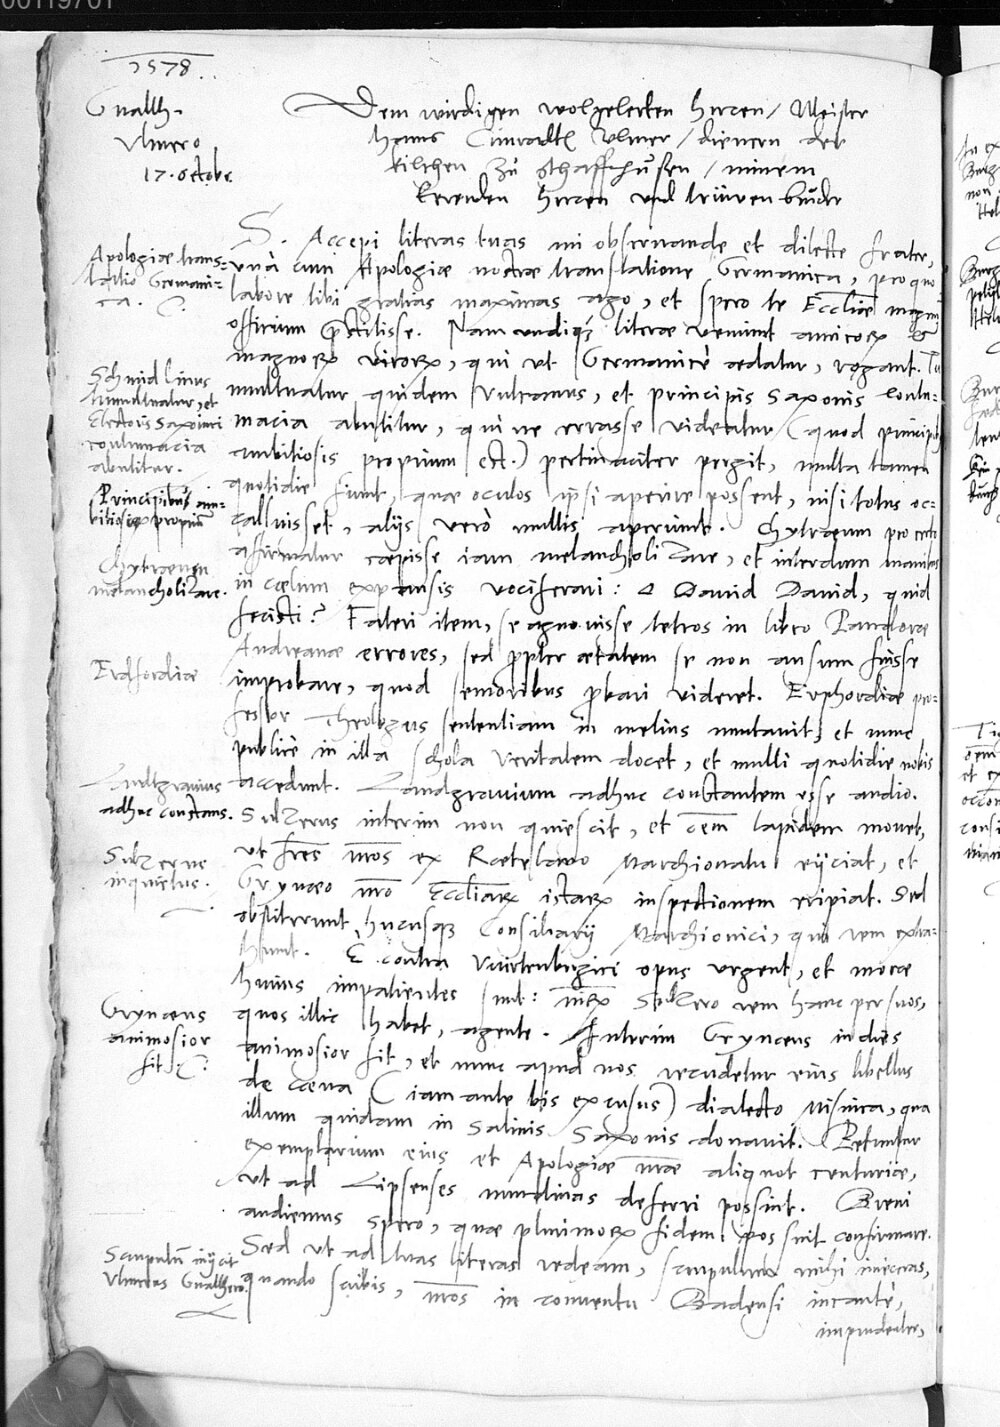 00119701
1578.
Gualth.
Ulmero
17. Octobr.
Dem wirdigen wolgelerten herren / Meister
Hanns Cůnradtē Ulmer / dienern der
kilchen zů Schaffhusen / minem
herren und trüwen brůder
S. Accepi literas tuas mi observande et dilecte frater,
unà cum Apologiæ nostræ translatione Germanica, pro quo
labore tibi gratias maximas ago, et spero te Ecclīæ magnū
officium præstitisse. Nam undiq; literæ veniunt amicorū et
magnorū virorū, qui ut Germanicè ædatur, rogant. Tu
multuatur quidem Vulcanus, et principis Saxonis contu=
macia abutitur, qui ne errasse videatur (quod principib;
ambitiosis proprium est.) pertinaciter pergit, multa tamen
quotidie fiunt, quæ oculos ipsi aperire possent, nisi totus oc=
calluisset, alijs verò multis aperiunt. Chytræum pro certo
affirmatur cœpisse iam melancholizare, et interdum manibus
in cœlum expansis vociferari: O David David, quid
fecisti? Fateri item, se agnovisse tetros in libro Pandoræ
Andreanæ errores, sed propter ætatem se non ausum fuisse
improbare, quod senioribus probari videret. Erphordiæ pro=
fessor Theologus sententiam in melius mutavit, et nunc
publicè in illa schola veritatem docet, et multi quotidie nobis
accedunt. Landgravium adhuc constantem esse audio.
Sulzerus interim non quiescit, et oēm lapidem movet,
ut frēs nr̄os ex Rœtelano Marchionatu eijciat, et
Grynæo nr̄o Ecclīarū istarū inspectionem eripiat. Sed
obstiterunt hucusq; Consiliarij Marchionici, qui rem extra=
hunt. E contra Wirtenbergici opus urgent, et moræ
huius impatientes sunt: Sulzero rem hanc per suos,
quos illic habet, agente. Interim Grynæus indies
animosior fit, et nunc apud nos recudetur eius libellus
de cœna (iam ante bis excusus) dialecto Misnica, qua
illum quidam in Salinis Saxonis donavit. Petuntur
exemplarium eius et Apologiæ nr̄æ aliquot centuriæ,
ut ad Lipsenses nundinas deferri possint. Brevi
audiemus spero, quæ plurimorū fidem possint confirmare.
Sed ut ad tuas literas redeam, scrupulum mihi inieceras,
quando scribis, nr̄os in conventu Badensi incautè,
imprudenter,
Apologiæ trans=
latio Germani=
ca.
Schmidlinus
tumultuatur, et
Electoris Saxonici
contumacia
abutitur.
Principibus am=
bitiosis proprium
Chytræum
melancholizare.
Erdfordiæ
Landtgravius
adhuc constans.
Sulzerus
inquietus.
Grynæus
animosior
fit.
Scrupulū inijcit
Ulmerus Gualthero.